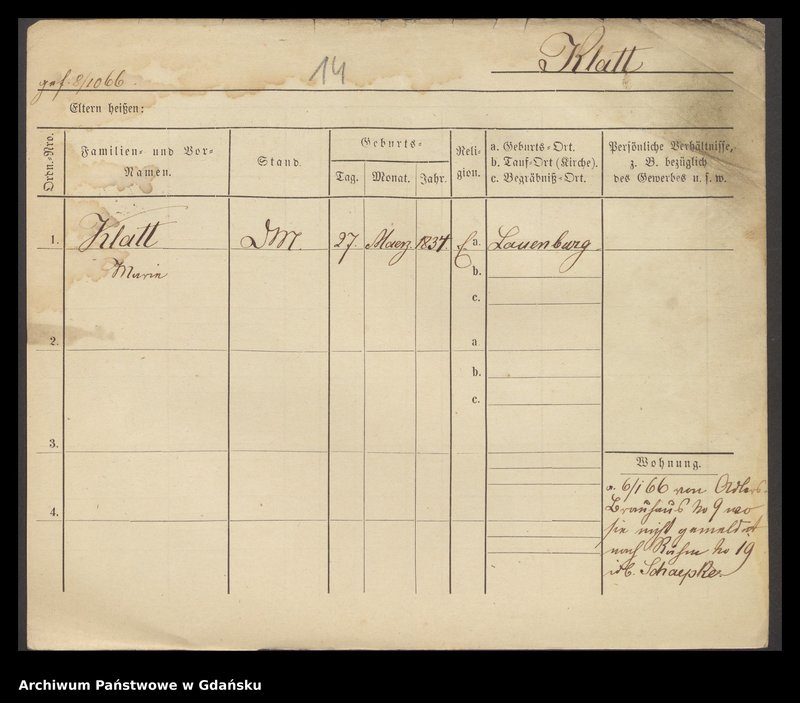 Klatt
14
gef. 8/10 66.
Eltern heißen:
Ordn.-Nro.
Familien- und Vor-
Namen.
Stand.
Geburts-
Tag.
Monat.
Jahr.
Reli-
gion.
a. Geburts-Ort.
b. Tauf-Ort (Kirche).
c. Begräbniß-Ort.
Persönliche Verhältnisse,
z. B. bezüglich
des Gewerbes u. s. w.
1. Klatt DM. 27. Maerz 1834 E. a. Lauenburg.
Marie
b.
c.
2. a
b.
c.
3.
4.
Wohnung.
a. 6/1 66 von Adlers
Brauhaus No 9 wo
sie nicht gemeldet
nach Rähm No 19
Schaepke
Archiwum Państwowe w Gdańsku